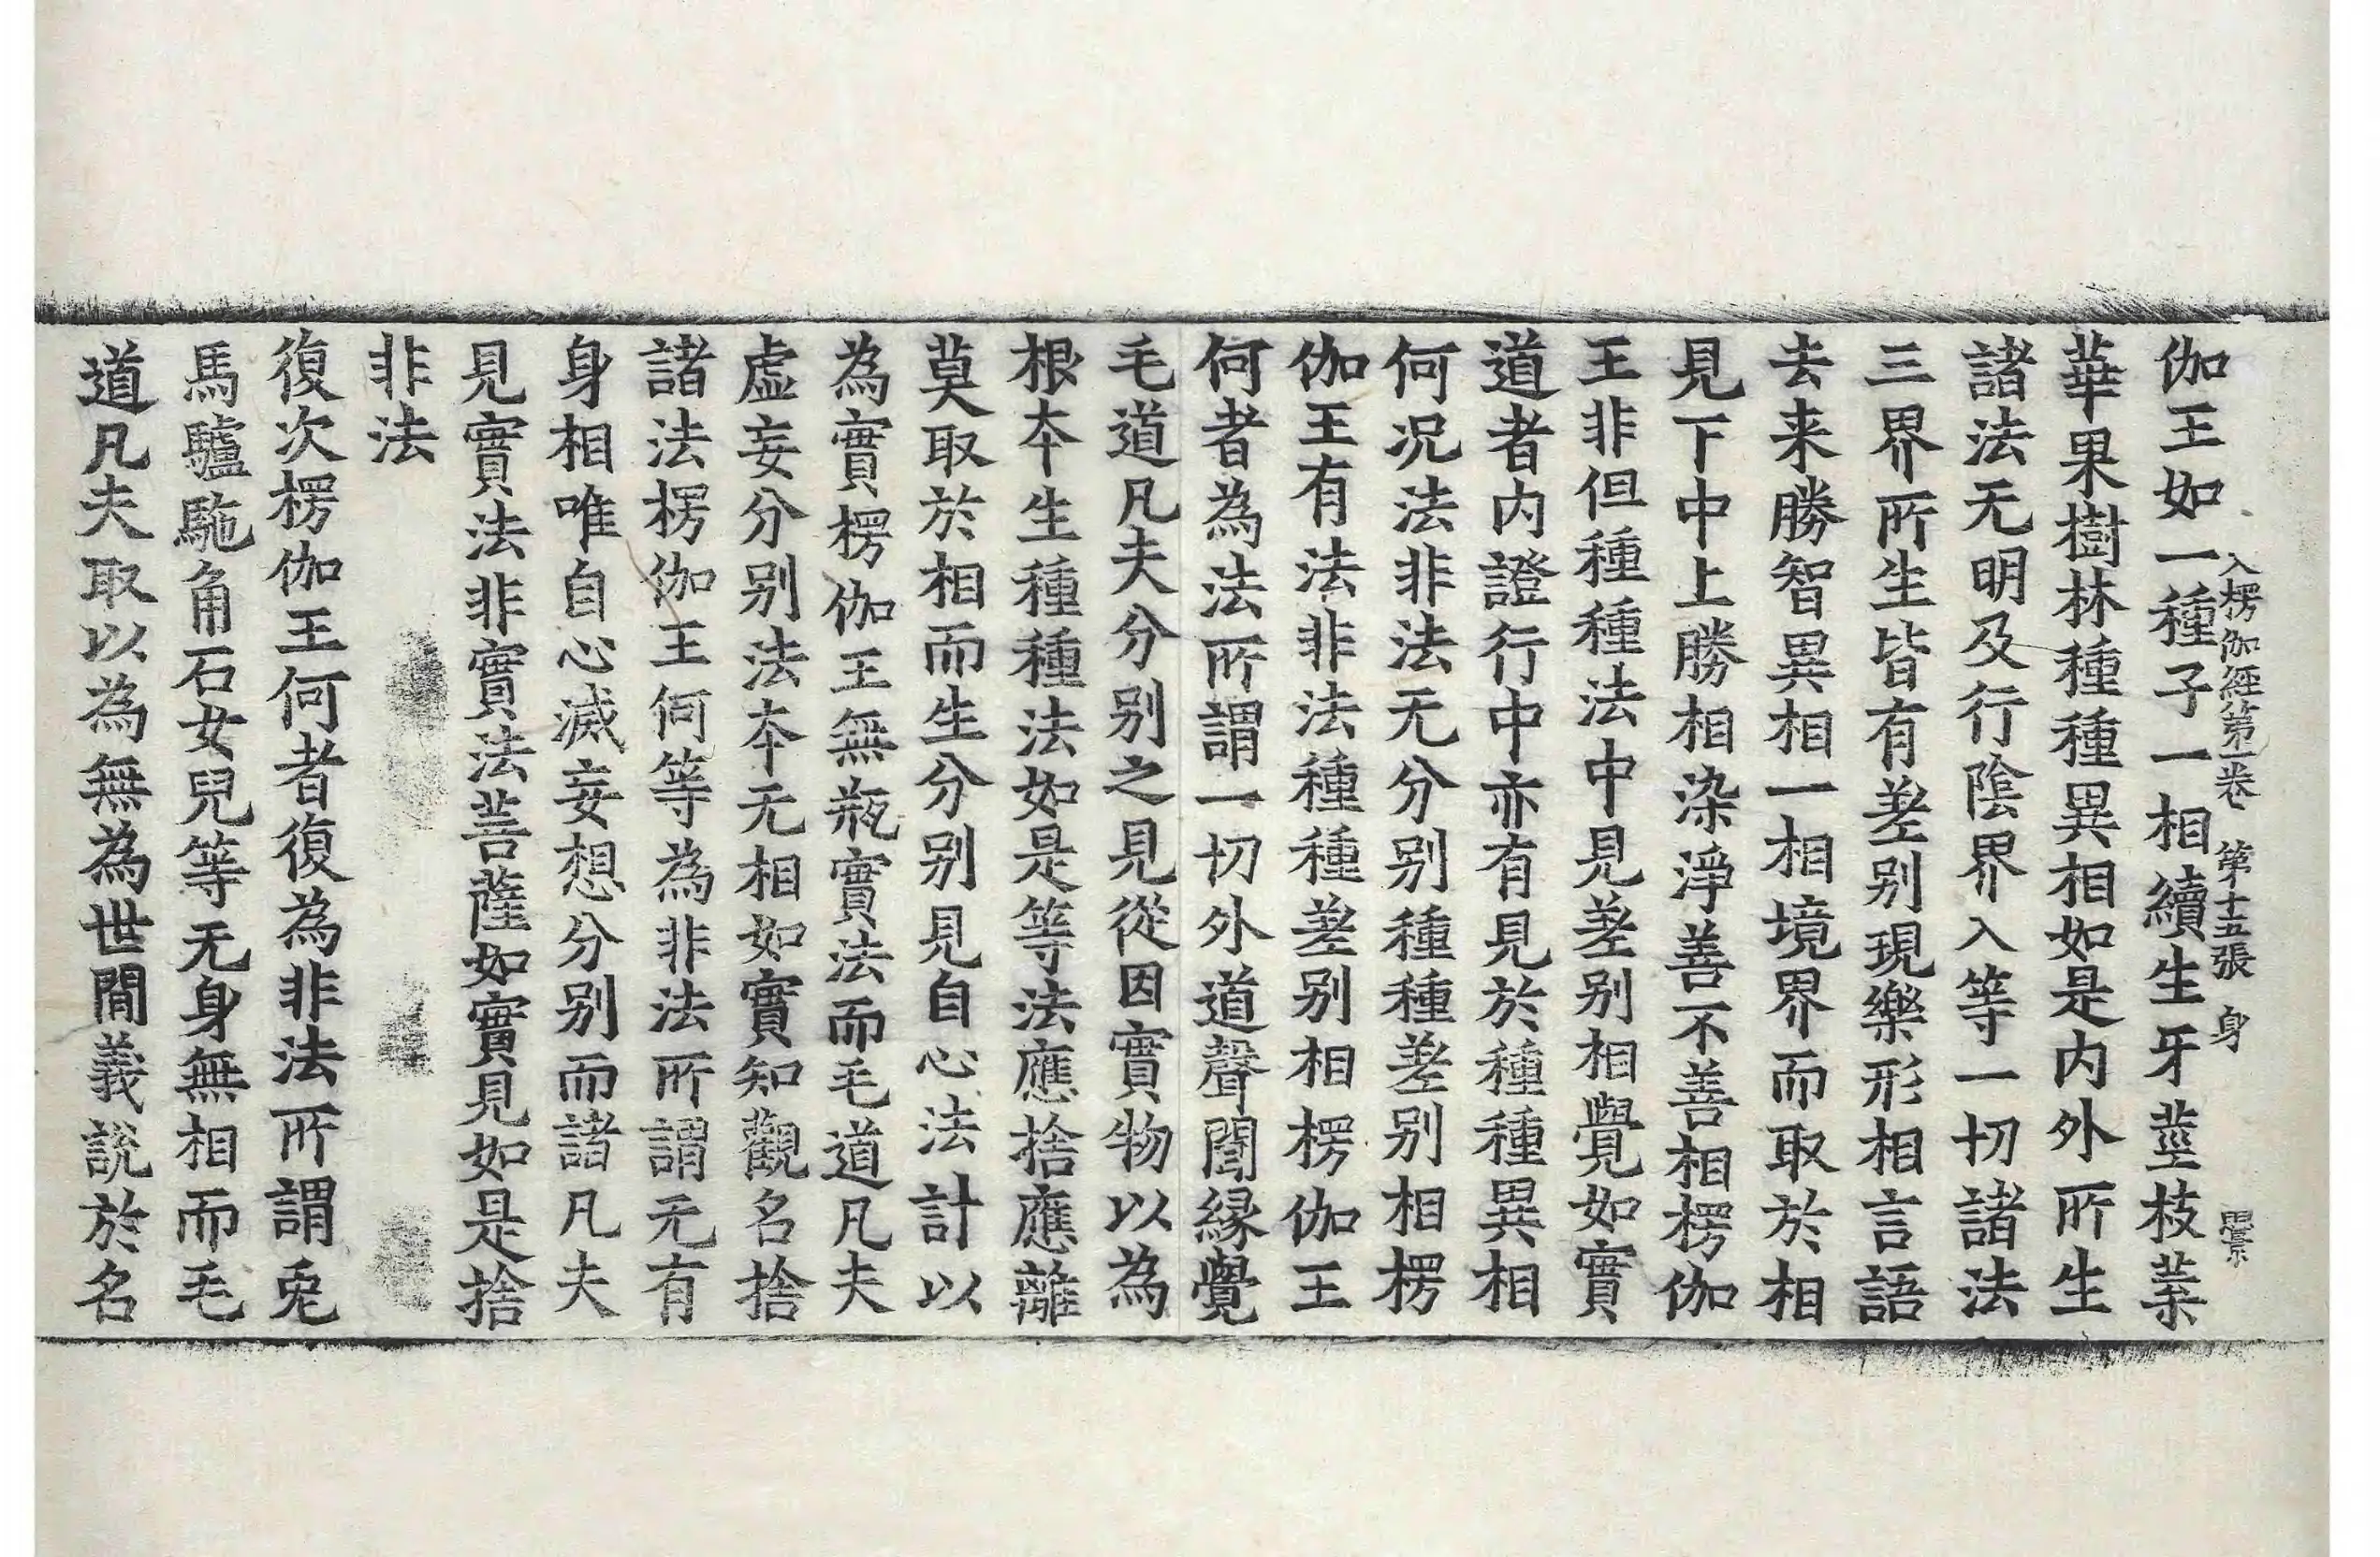 入楞伽經第一卷 第十五張 身
伽王如一種子一相續生牙莖枝葉
華果樹林種種異相如是内外所生
諸法无明及行陰界入等一切諸法
三界所生皆有差别現樂形相言語
去来勝智異相一相境界而取於相
見下中上勝相染淨善不善相楞伽
王非但種種法中見差别相覺如實
道者内證行中亦有見於種種異相
何况法非法无分别種種差别相楞
伽王有法非法種種差别相楞伽王
何者為法所謂一切外道聲聞縁覺
毛道凡夫分别之見從因實物以為
根本生種種法如是等法應捨應離
莫取於相而生分别見自心法計以
為實楞伽王無瓶實法而毛道凡夫
虚妄分别法本无相如實知觀名捨
諸法楞伽王何等為非法所謂无有
身相唯自心滅妄想分别而諸凡夫
見實法非實法菩薩如實見如是捨
非法
復次楞伽王何者復為非法所謂兎
馬驢駞角石女兒等无身無相而毛
道凡夫取以為無為世間義説於名